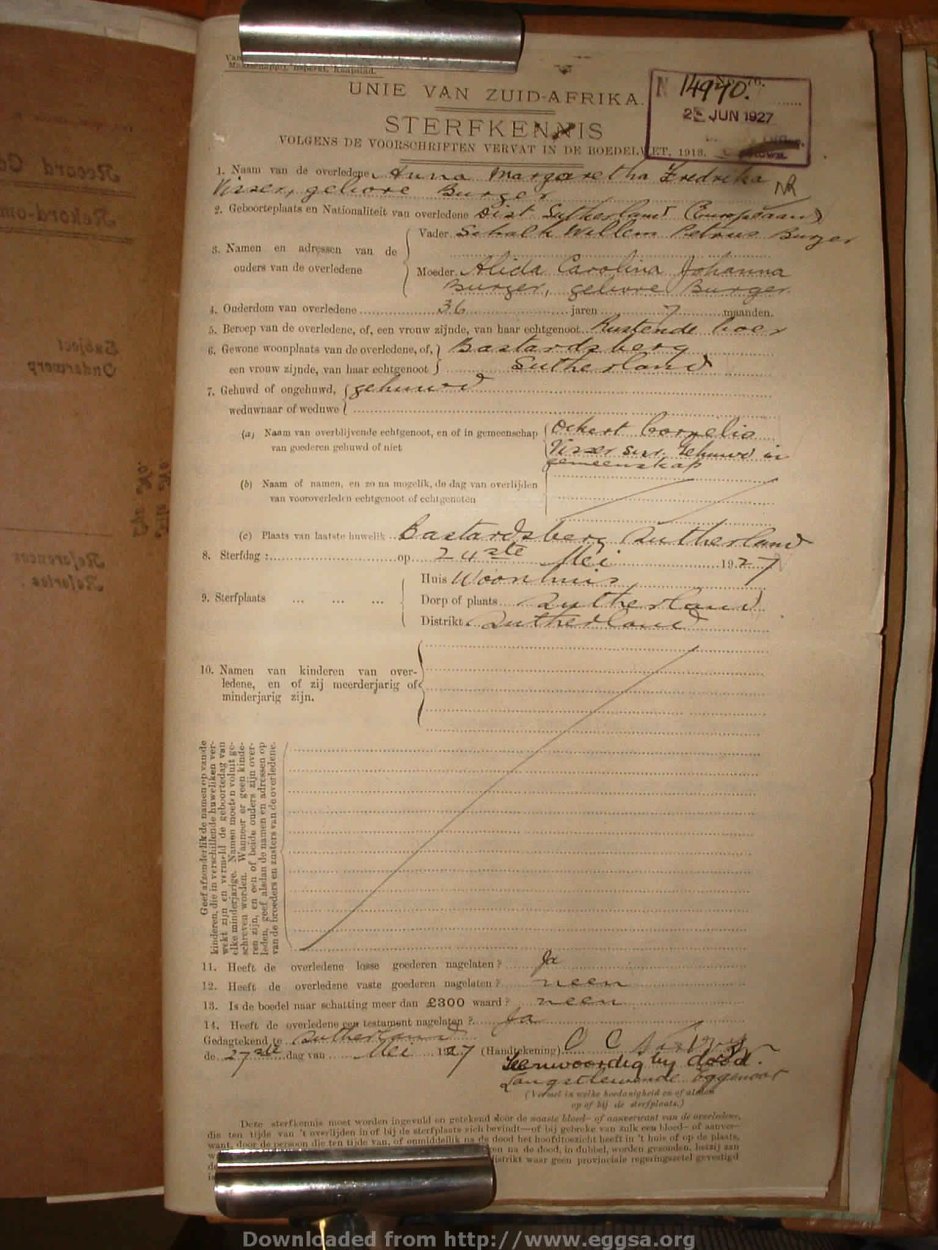 UNIE VAN ZUID-AFRIKA.
N 14970.
25 JUN 1927
STERFKENNIS
VOLGENS DE VOORSCHRIFTEN VERVAT IN DE BOEDELWET, 1913.
1. Naam van de overledene Anna Margaretha Fredrika
Visser, gebore Burger
2. Geboorteplaats en Nationaliteit van overledene Dist Sutherland
3. Namen en adressen van de ouders van de overledene
Vader Schalk Willem Petrus Burger
Moeder Alida Carolina Johanna
Burger, gebore Burger
4. Ouderdom van overledene 36 jaren 7 maanden.
5. Beroep van de overledene, of, een vrouw zijnde, van haar echtgenoot Rustende boer
6. Gewone woonplaats van de overledene, of, Bastardsberg
een vrouw zijnde, van haar echtgenoot Sutherland
7. Gehuwd of ongehuwd, gehuwd
weduwnaar of weduwe
(a) Naam van overblijvende echtgenoot, en of in gemeenschap Ockert Cornelis
van goederen gehuwd of niet Visser Senr. Gehuwd in
gemeenskap
(b) Naam of namen, en zo na mogelik, de dag van overlijden
van vooroverleden echtgenoot of echtgenoten
(c) Plaats van laatste huwelik Bastardsberg Sutherland
8. Sterfdag : op 24ste Mei 1927
9. Sterfplaats ... ... ...
Huis Woonhuis
Dorp of plaats Sutherland
Distrikt Sutherland
10. Namen van kinderen van over-
ledene, en of zij meerderjarig of
minderjarig zijn.
Geef afzonderlik de namen op van de
kinderen, die in verschillende huweliken ver-
wekt zijn en vermeld de geboortedag van
elke minderjarige. Namen moeten voluit ge-
schreven worden. Wanneer er geen kinde-
ren zijn, en een of beide ouders zijn over-
leden, geef alsdan de namen en adressen op
van de broeders en zusters van de overledene.
11. Heeft de overledene losse goederen nagelaten ? Ja
12. Heeft de overledene vaste goederen nagelaten ? neen
13. Is de boedel naar schatting meer dan £300 waard ? neen
14. Heeft de overledene een testament nagelaten ? Ja
Gedagtekend te Sutherland
de 27ste dag van Mei 1927 (Handtekening) O C Visser
Teenwoordig by dood.
Langstlewende eggenoot
(Vermel in welke hoedanigheid en of
op of bij de sterfplaats.)
Deze sterfkennis moet worden ingevuld en getekend door de naaste bloed- of aanverwant van de overledene,
die ten tijde van 't overlijden in of bij de sterfplaats zich bevindt—of bij gebreke van zulk een bloed- of aanver-
want, door de persoon die ten tijde van, of onmiddellik na de dood het hoofdtoezicht heeft in 't huis of op de plaats,
en na de dood, in dubbel, worden gezonden, hetzij aan
distrikt waar geen provinciale regeringszetel gevestigd
Downloaded from http://www.eggsa.org